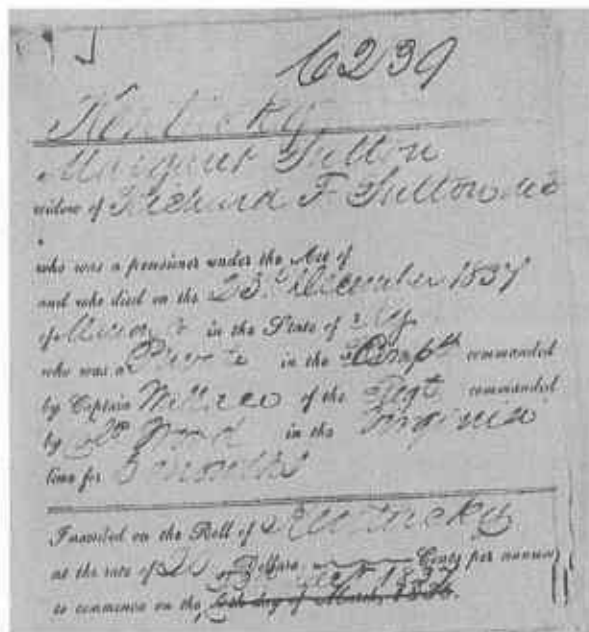 6239
Kentucky
Margaret Sutton
widow of Richard F Sutton decd
who was a pensioner under the Act of
and who died on the 23d December 1837
of in the State of Ky
who was a Private in the Compy commanded
by Captain of the Regt commanded
by in the Virginia
line for 5 months
Inscribed on the Roll of Kentucky
at the rate of 20 Dollars, Cents per annum
to commence on the 4th day of March, 1836.